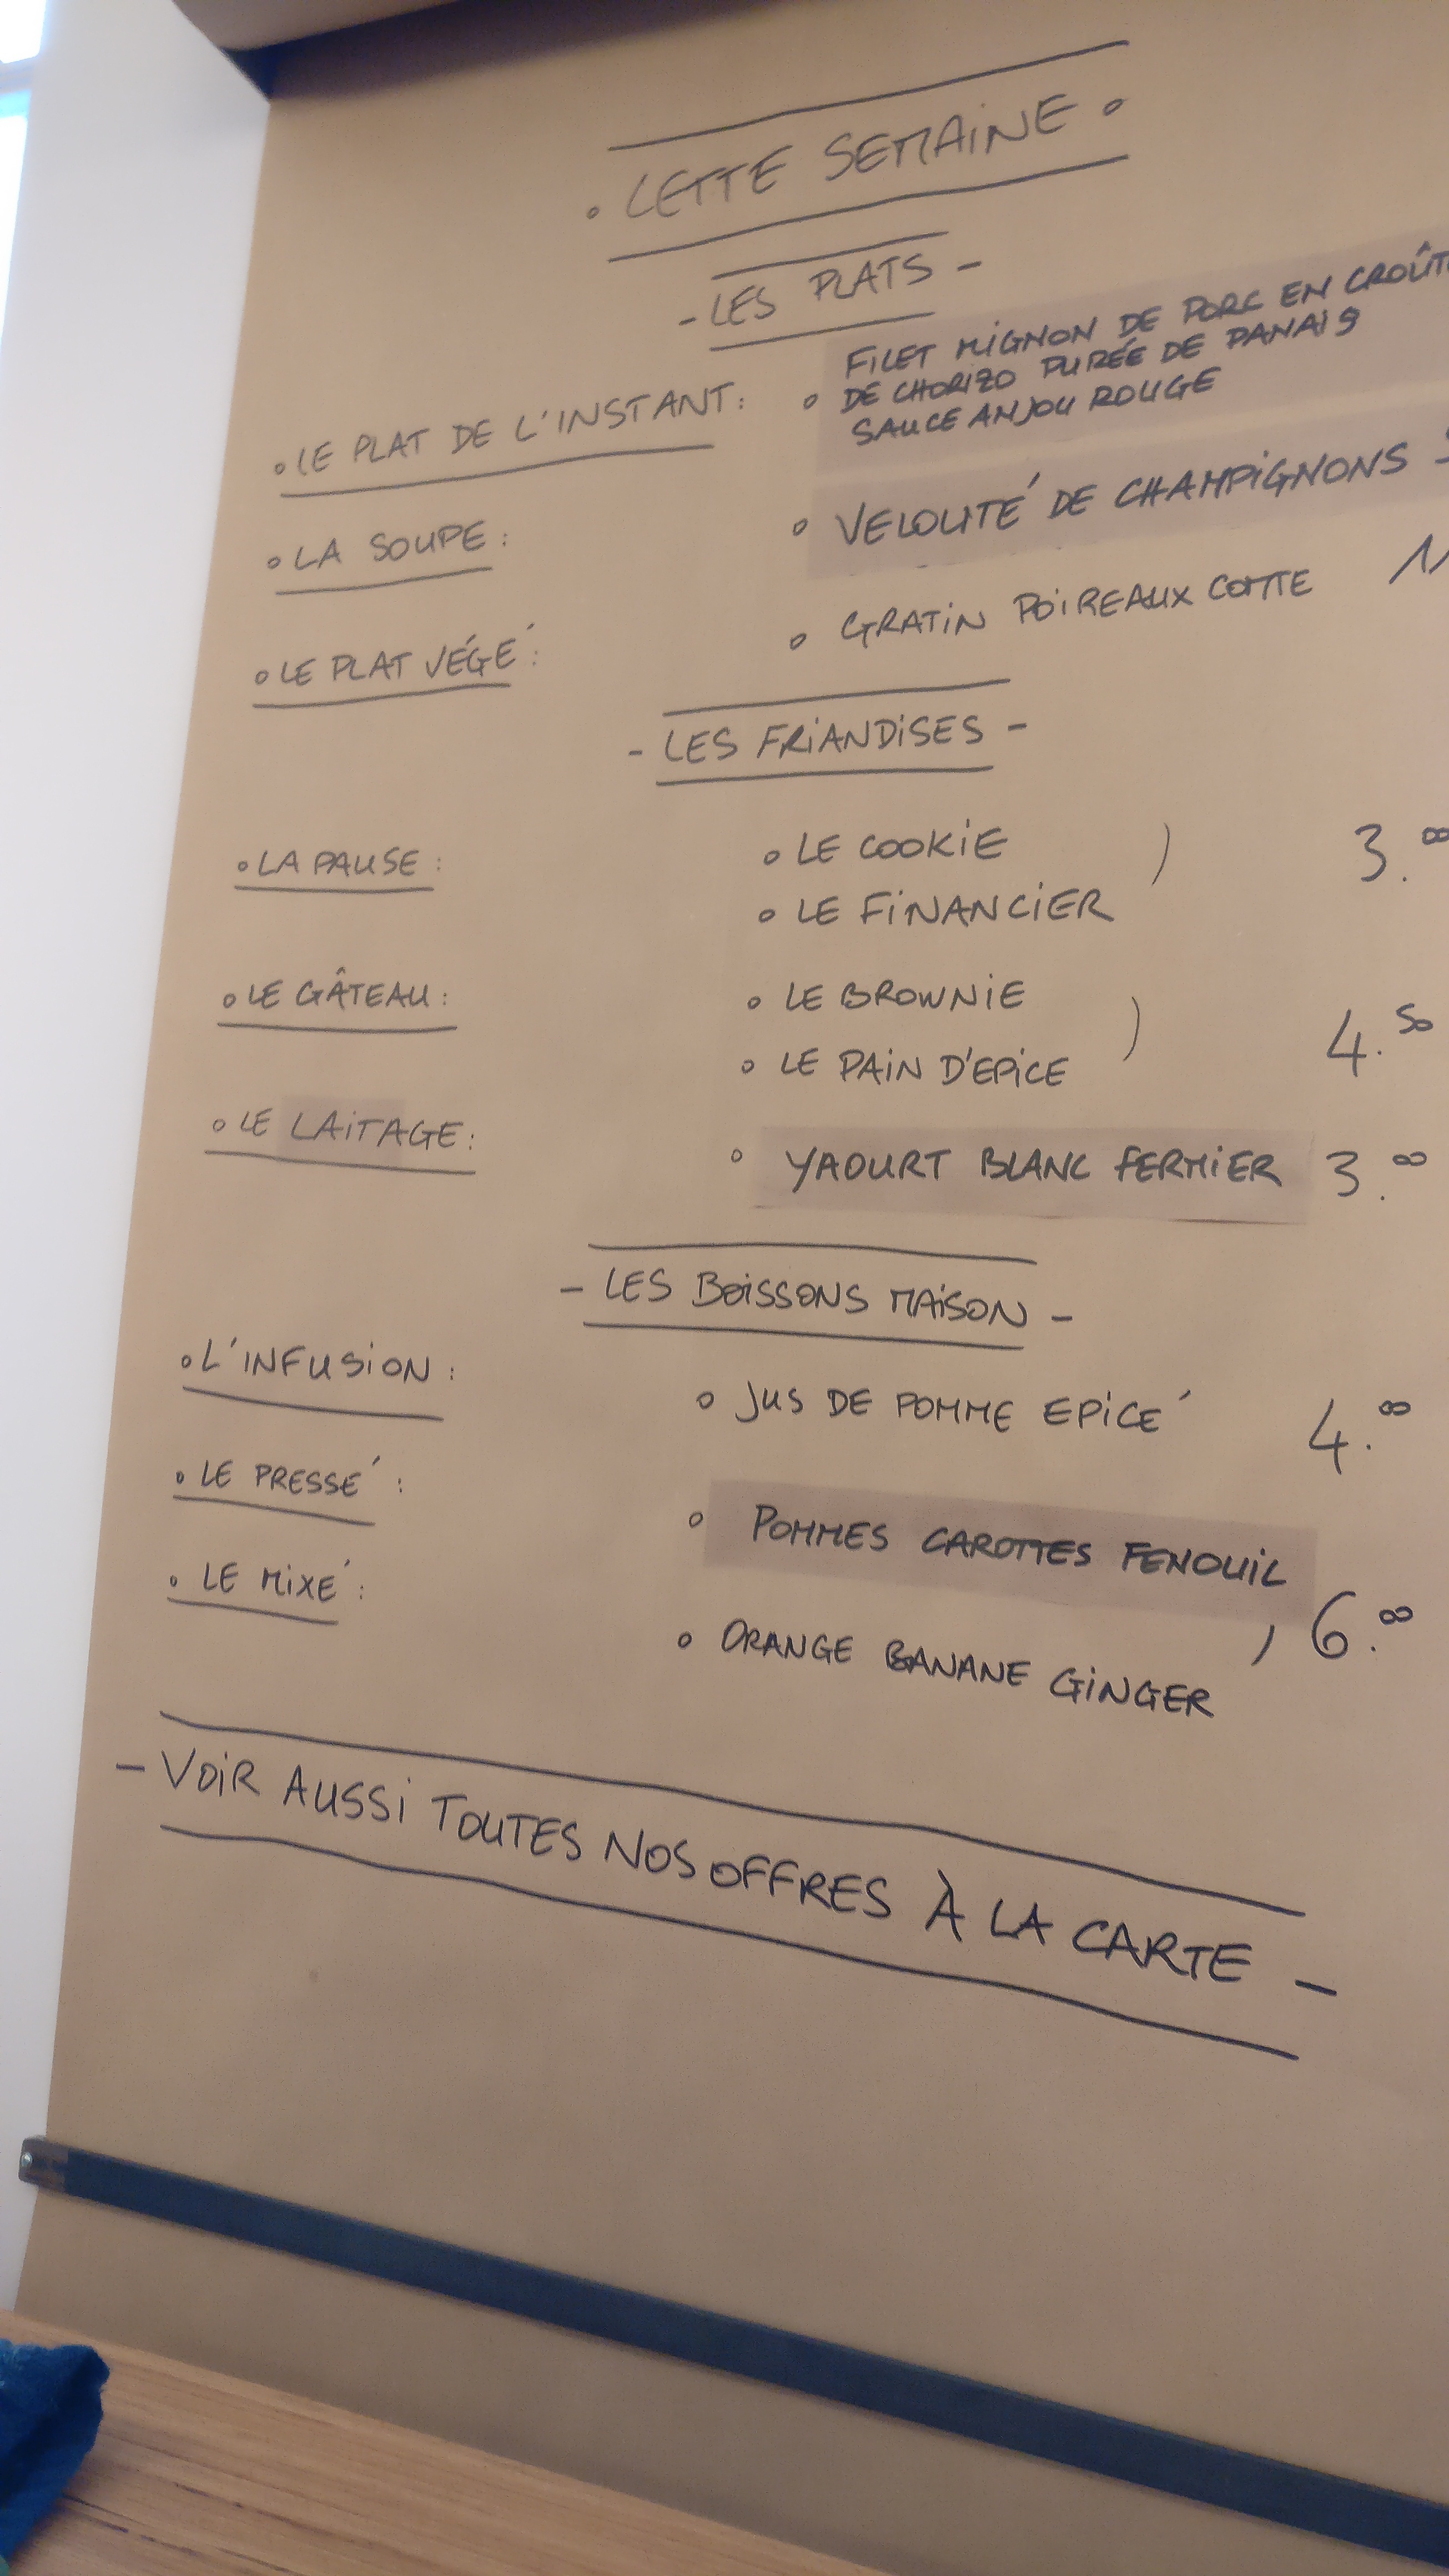 CETTE SEMAINE
- LES PLATS -
LE PLAT DE L'INSTANT :
FILET MIGNON DE PORC EN CROÛTE
DE CHORIZO PURÉE DE PANAIS
SAUCE ANJOU ROUGE
LA SOUPE :
VELOUTÉ DE CHAMPIGNONS
LE PLAT VÉGÉ :
GRATIN POIREAUX COMTE
- LES FRIANDISES -
LA PAUSE :
LE COOKIE ) 3.00
LE FINANCIER
LE GÂTEAU :
LE BROWNIE ) 4.50
LE PAIN D'EPICE
LE LAITAGE :
YAOURT BLANC FERMIER 3.00
- LES BOISSONS MAISON -
L'INFUSION :
JUS DE POMME EPICÉ 4.00
LE PRESSÉ :
POMMES CAROTTES FENOUIL
LE MIXÉ :
ORANGE BANANE GINGER ) 6.00
- VOIR AUSSI TOUTES NOS OFFRES À LA CARTE -